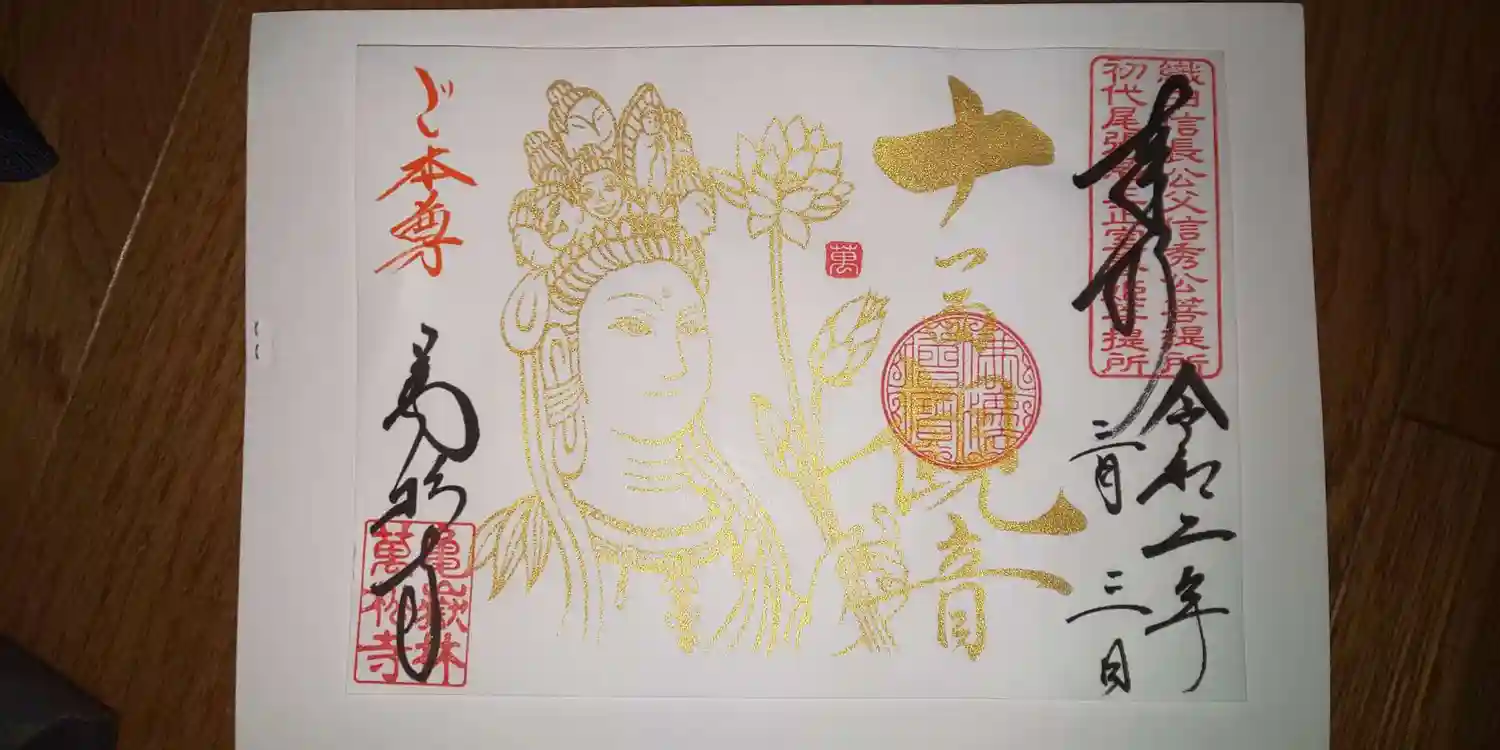 織田信長公父信秀公菩提所
初代尾張藩主正室春姫菩提所
奉拝
令和二年
三月三日
十一面観音
佛法僧寶
萬
ご本尊
萬松寺
亀嶽林
萬松寺